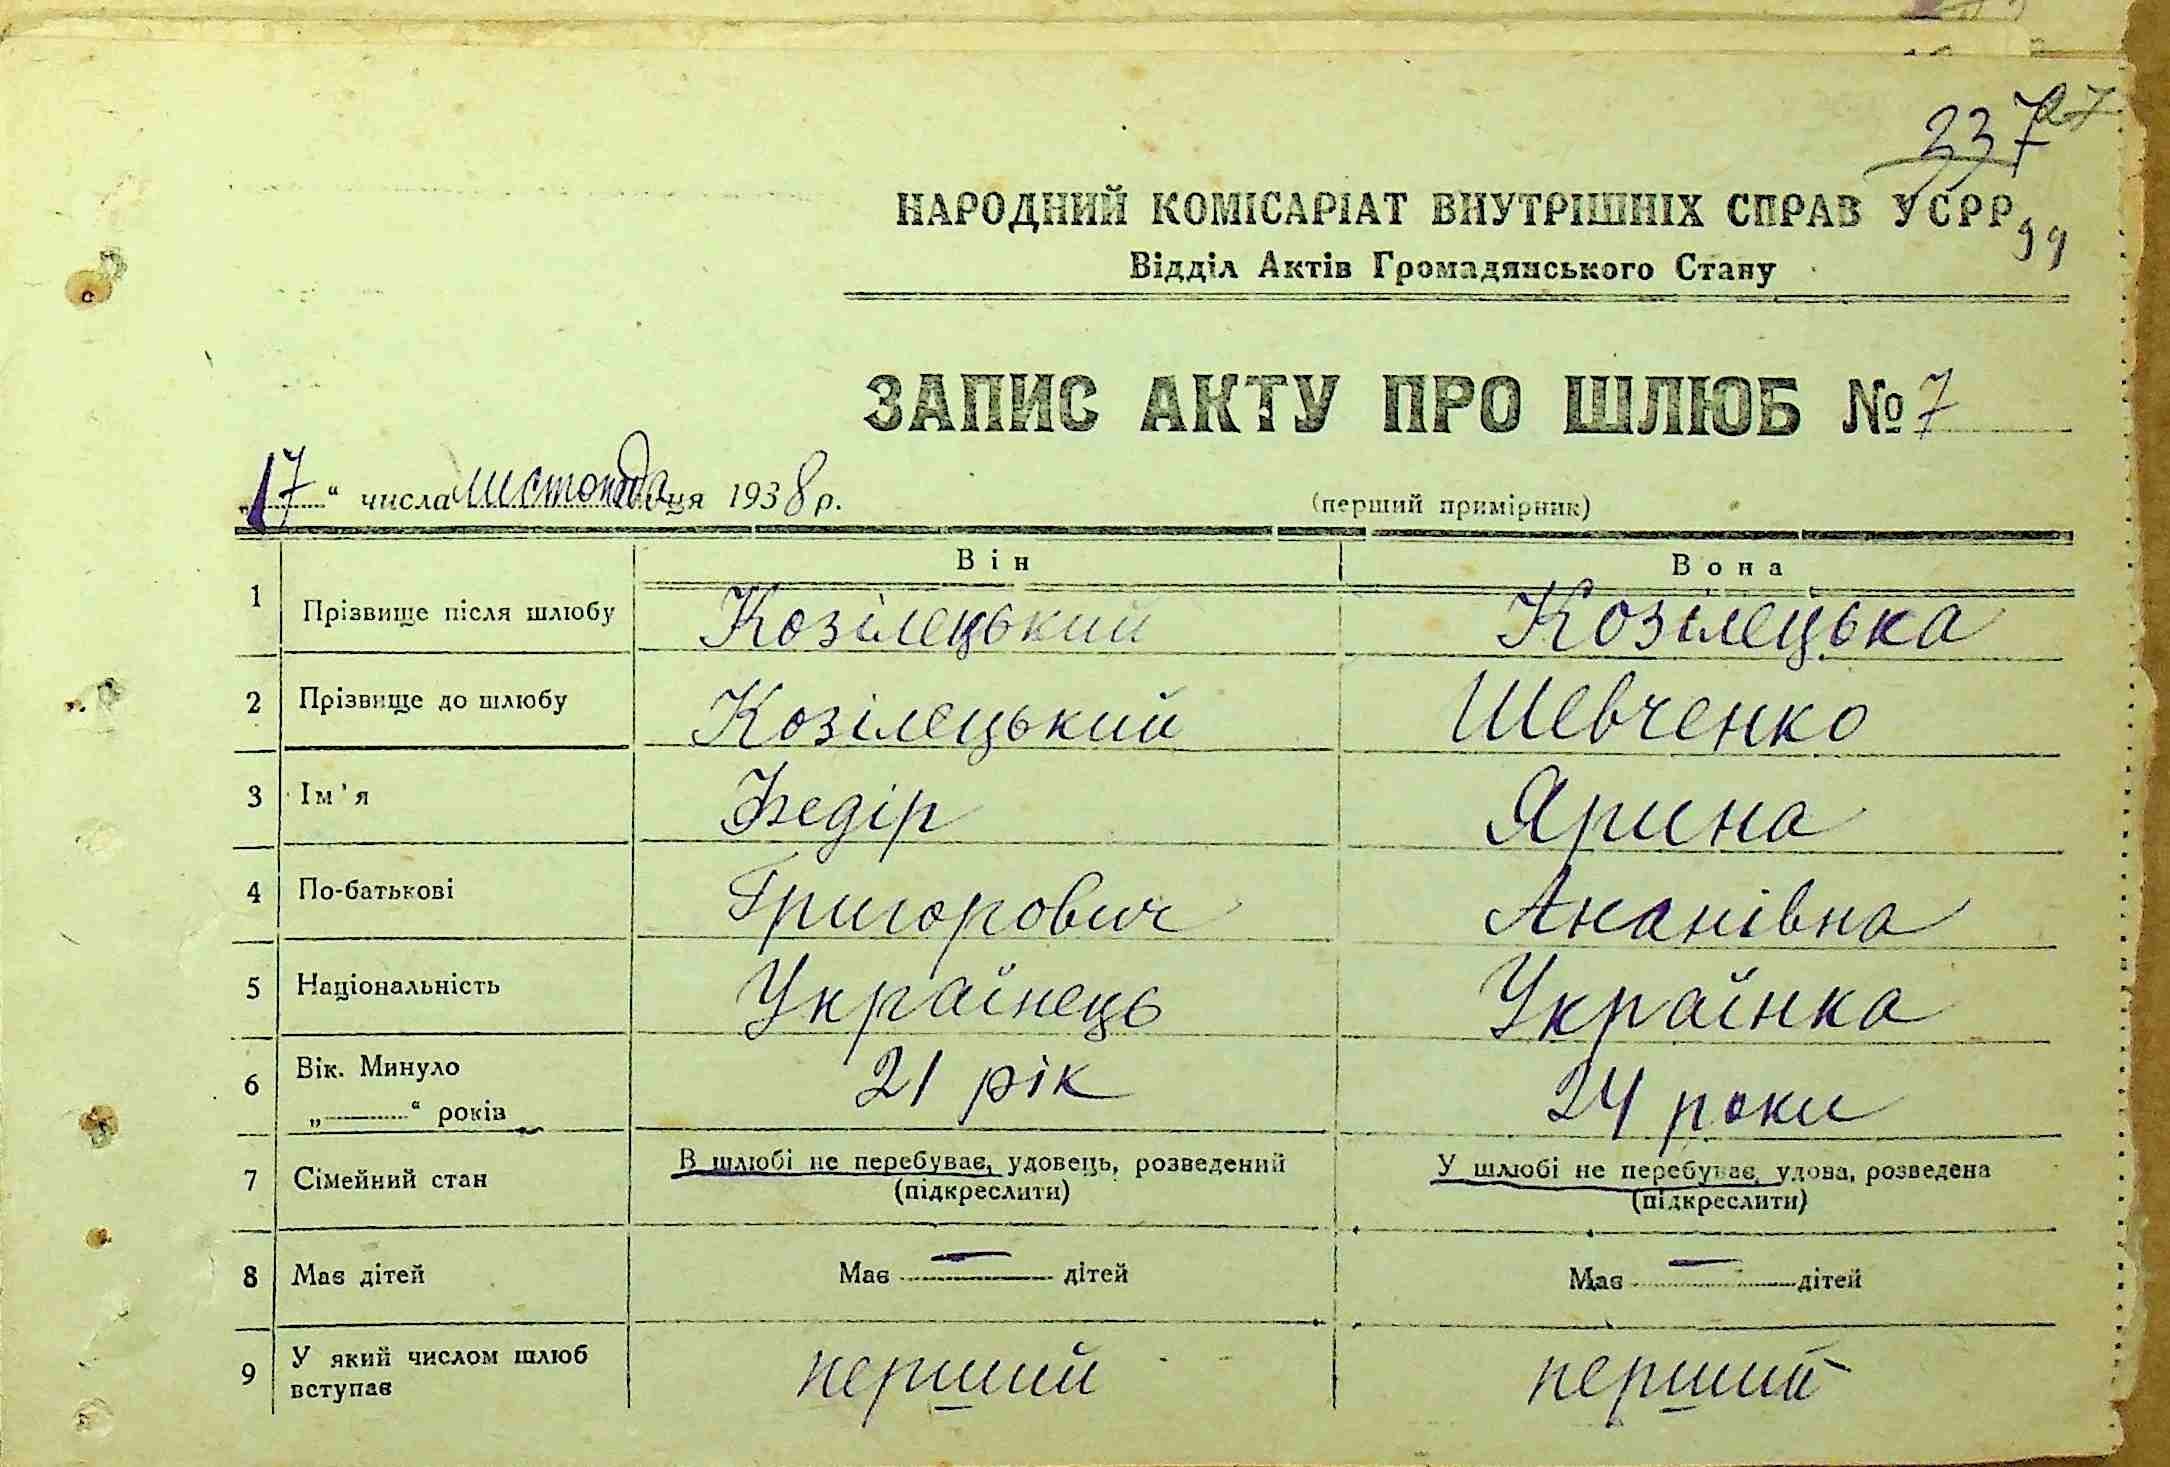 237
27
НАРОДНИЙ КОМІСАРІАТ ВНУТРІШНІХ СПРАВ УСРР
99
Відділ Актів Громадянського Стану
ЗАПИС АКТУ ПРО ШЛЮБ № 7
„17“ числа листопада ця 1938 р. (перший примірник)
Він Вона
1 Прізвище після шлюбу Козілецький Козілецька
2 Прізвище до шлюбу Козілецький Шевченко
3 Ім'я Федір Ярина
4 По-батькові Григорович Ананівна
5 Національність Українець Українка
6 Вік. Минуло „ “ років 21 рік 24 роки
7 Сімейний стан В шлюбі не перебуває, удовець, розведений (підкреслити) У шлюбі не перебуває, удова, розведена (підкреслити)
8 Має дітей Має — дітей Має — дітей
9 У який числом шлюб вступає перший перший